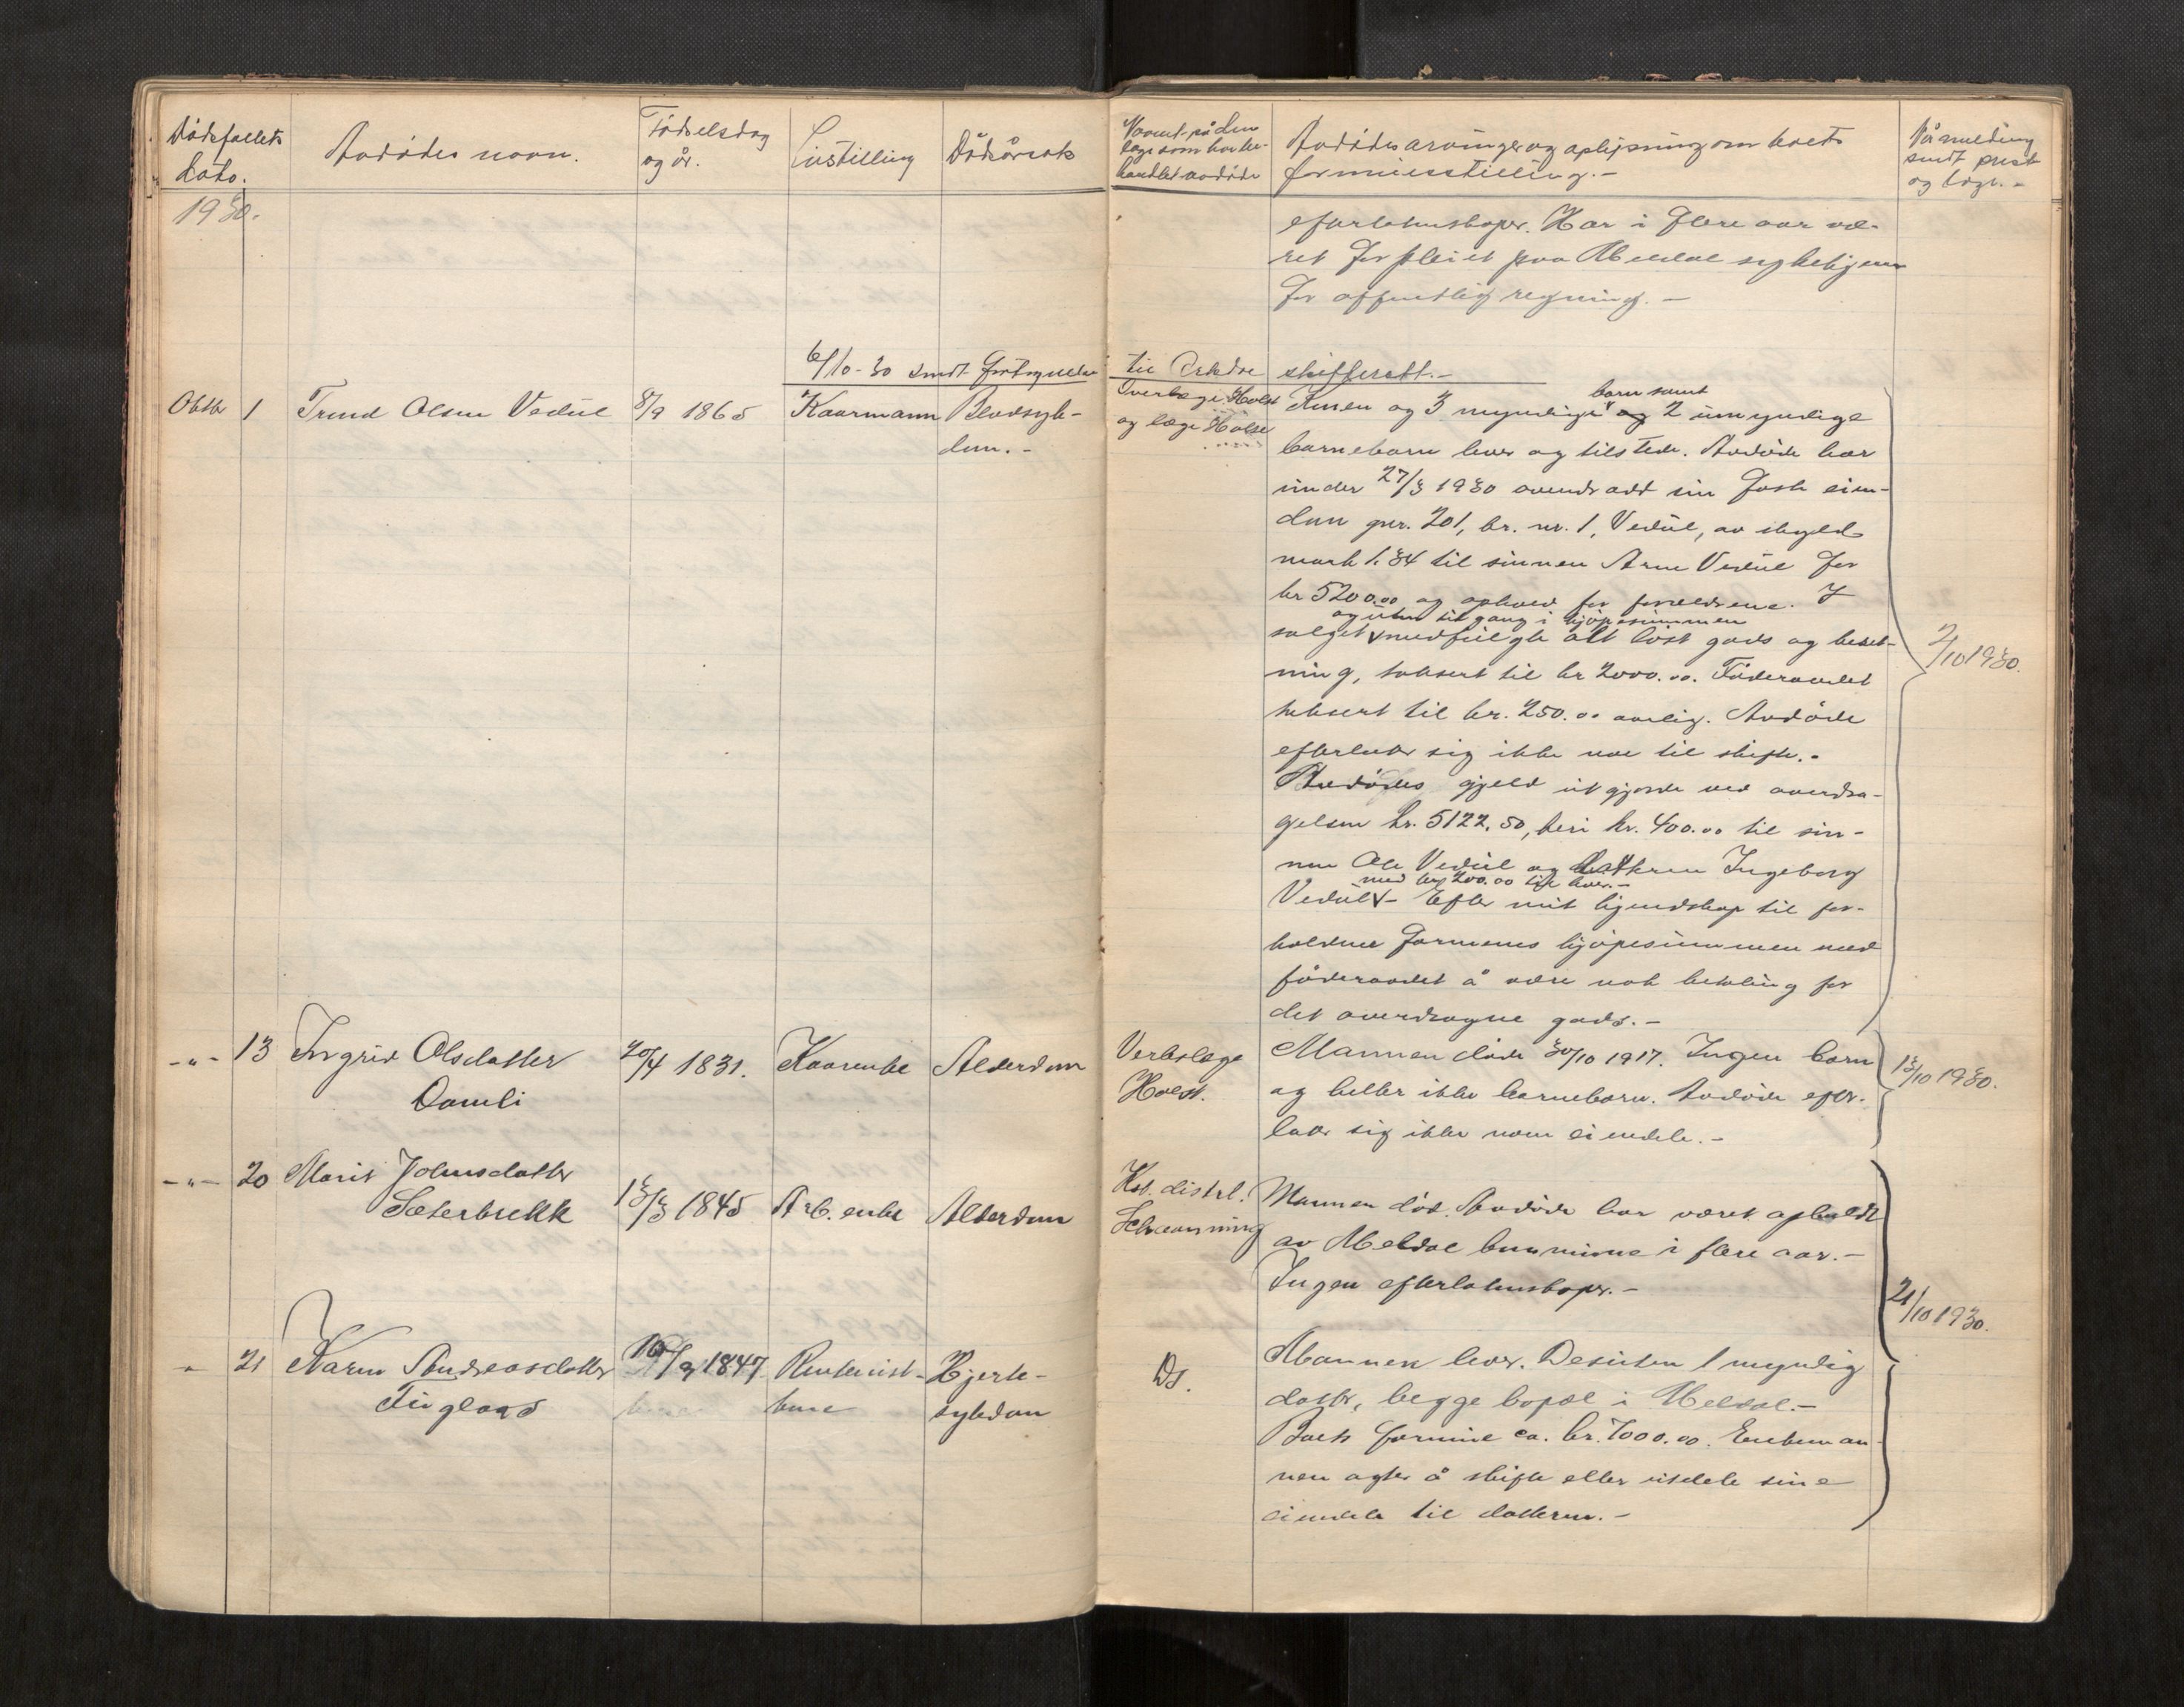 Dødsfallets
dato.
Avdødes navn.
Fødselsdag
og år.
Livstilling
Dödsårsak
Navnet på den
læge som har be-
handlet avdøde
Avdødes arvinger og oplysning om boets
formuesstilling. -
Når melding
sendt prest
og læge. -
1930.
efterlatenskaper. Har i flere aar væ-
ret forpleiet paa Meldal sykehjem
for offentlig regning. -
6/10-30 sendt fortegnelse til Orkdal skifterett. -
Oktbr 1 Trond Olsen Vedul 8/9 1865 Kaarmann Blodsyk-
dom. -
Overlæge Holst
og læge Holst
Konen og 3 myndige barn samt 2 umyndige
barnebarn lever og tilstede. Avdøde har
under 27/3 1930 overdradd sin faste eien-
dom gnr. 201, br. nr. 1, Vedül, av skyld-
mark 1.34 til sønnen Arne Vedül for
kr 5200.00 og ophold for forældrene. I
og uten tilgang i kjöpesummen
salget medfulgte alt löst gods og beset-
ning, taksert til kr 2000.00. Föderaadet
taksert til kr. 250.00 aarlig. Avdöde
efterlater sig ikke noe til skifte. -
Avdödes gjeld utgjorde ved overdra-
gelsen kr. 5122,50, heri kr. 400.00 til sön-
nen Ole Vedül og datteren Ingeborg
med kr 200.00 til hver. -
Vedül - Efter mit kjendskap til for-
holdene formenes kjöpesummen med
föderaadet å være nok betaling for
det overdragne gods. -
2/10 1930.
-"- 13 Ingrid Olsdatter
Damli
20/4 1831. Kaarenke Alderdom
Verkslæge
Holst.
Mannen döde 30/10 1917. Ingen barn
og heller ikke barnebarn. Avdöde efter-
later sig ikke noen eiendele. -
13/10 1930.
-"- 20 Marit Johnsdatter
Sæterbrekk
13/3 1845 Arb. enke Alderdom
Kst. distrl.
Schwenning
Mannen död. Avdöde har været opholdt
av Meldal kommune i flere aar. -
Ingen efterlatenskaper. -
21/10 1930.
" 21 Karen Andreasdatter
Fuglaas
16/9 1847. Rentenist-
kone
Hjerte-
sykdom
Ds.
Mannen lever. Desuten 1 myndig
datter, begge bopæl i Meldal. -
Boets formue ca. kr. 7000.00. Enkeman-
nen agter å skifte eller utdele sine
eiendele til datteren. -